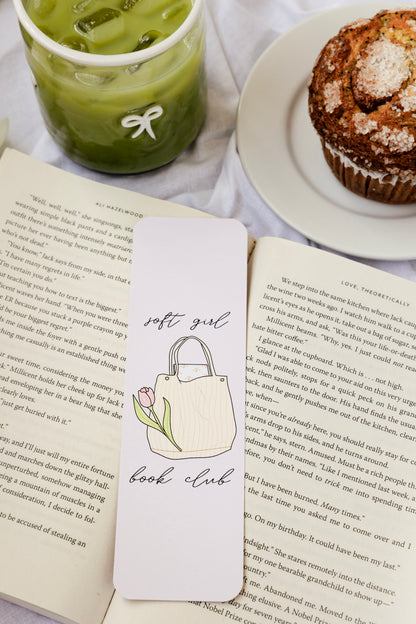 ALI HAZELWOOD
"Well, well, well," she singsongs, sta
wearing simple black pants and a cardig
outfit there's something intensely mirror
picture her ever having been anything but
who's not dead."
"You know," Jack says from my side, in that e
"I have many regrets in life."
"I'm certain you do."
teaching you how to text is the biggest."
licent waves her hand. "When you were three
ER because you stuck a purple crayon up y
d be your biggest regret."
ls me inside the foyer with a gentle push o
ng me casually is an established thing we
sweet time, considering the money you
Millicent holds her cheek up for Jack
ad enveloping her in a bear hug that she
clearly loves.
just get buried with it."
way, and I'll just will my entire fortune
and marches down the glitzy hall-
unperturbed, somehow managing
g a mountain of muscles in a
of consideration, I decide to fol-
to be accused of stealing an
soft girl
book club
LOVE, THEORETICALLY
We step into the same kitchen where Jack
the wine two weeks ago. I watch him walk to a cup
licent's eyes as he opens it, take out a bag of sugar, a
cross his arms, and ask, "Was this your life-or-deat
Millicent beams. "Why, yes. I just could not read
hate bitter coffee."
I glance at the cupboard. Which is . . . not high.
"Glad I was able to come to your aid on this very
nods politely, stops for a quick peck on his gran
head, then saunters to the door. His hand finds the usua
back, and he gently pushes me out of the kitchen, clear
when—
since you're already here, you should really stay for
's arms drop to his sides, and he turns around.
ent," he says, stern. Amused. Must be a rich people thi
ndmas by their names. "Like I mentioned last week, a
fore, you don't need to trick me into spending time
But I have been burned. Many times."
the last time you asked me to come over and I
go. On my birthday. It could have been my last."
ndsight." She stares remotely into the distance.
for my one bearable grandchild to show up—"
me an elusive being again."
at. Me. Abandoned me. Moved to the
d year for seven years
What Nobel Prize